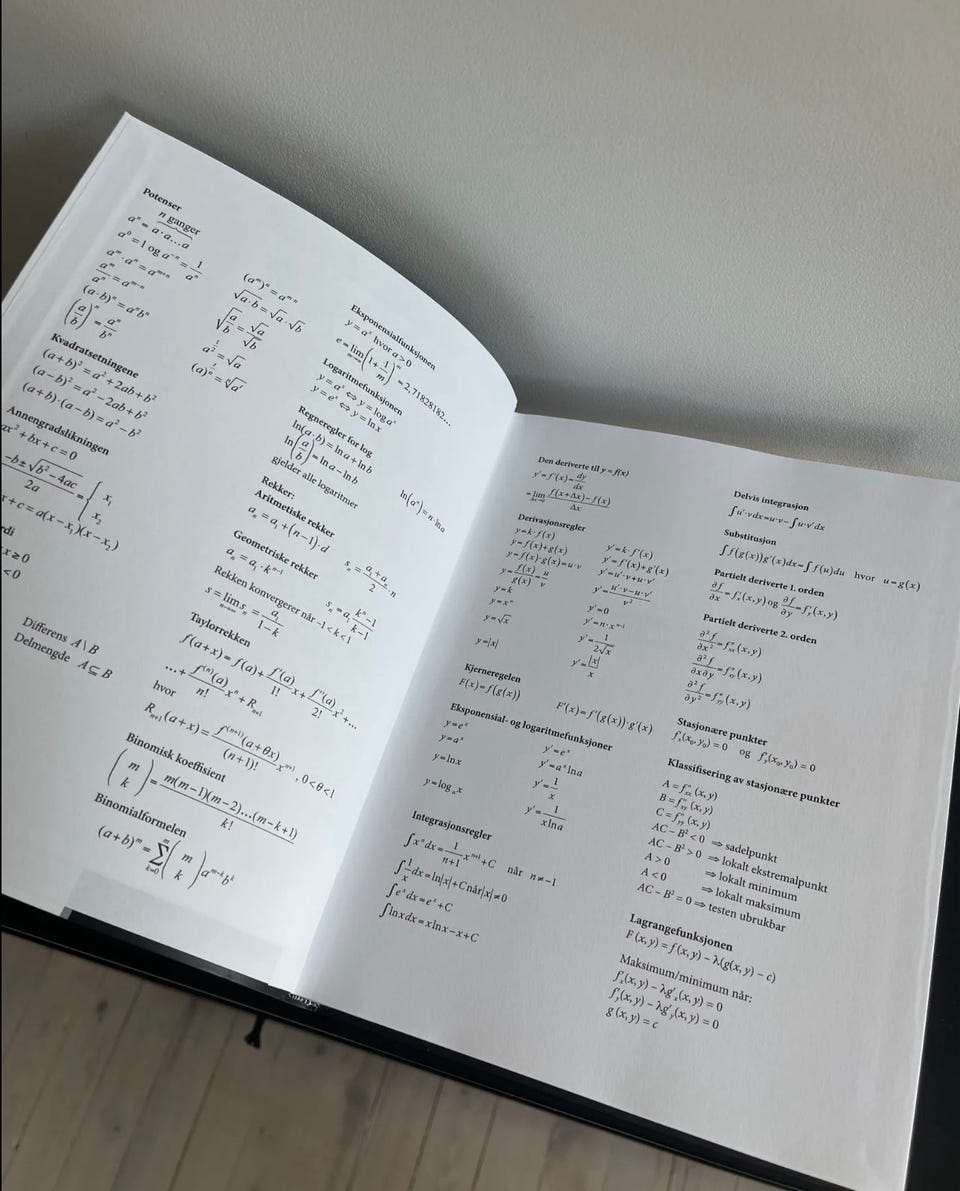 Potenser
n ganger
aⁿ = a·a...a
a⁰ = 1 og a⁻ⁿ = 1/aⁿ
aᵐ·aⁿ = aᵐ⁺ⁿ
aᵐ/aⁿ = aᵐ⁻ⁿ
(a·b)ⁿ = aⁿbⁿ
(a/b)ⁿ = aⁿ/bⁿ
(aᵐ)ⁿ = aᵐ·ⁿ
√(a·b) = √a·√b
√(a/b) = √a/√b
= √a
Kvadratsetningene
(a+b)² = a²+2ab+b²
(a−b)² = a²−2ab+b²
(a+b)·(a−b) = a²−b²
Annengradslikningen
ax²+bx+c=0
−b±√(b²−4ac)/2a = { x₁ x₂
x+c = a(x−x₁)(x−x₂)
x≥0
<0
Differens A\B
Delmengde A⊆B
Eksponensialfunksjonen
y = aˣ hvor a>0
e = lim(1+1/m)ᵐ = 2,71828182...
Logaritmefunksjonen
y = eˣ ⇔ y = ln x
Regneregler for log
ln(a·b) = ln a + ln b
ln(a/b) = ln a − ln b
ln(aⁿ) = n ln a
gjelder alle logaritmer
Rekker:
Aritmetiske rekker
aₙ = a₁+(n−1)·d
sₙ = (a₁+aₙ)/2·n
Geometriske rekker
aₙ = a₁·kⁿ⁻¹
sₙ = a₁ (kⁿ−1)/(k−1)
Rekken konvergerer når −1<k<1
s = lim sₙ = a₁/(1−k)
Taylorrekken
f(a+x) = f(a)+f'(a)/1! x+f''(a)/2! x²+...
...+f⁽ⁿ⁾(a)/n! xⁿ+Rₙ₊₁
hvor
Rₙ₊₁(a+x) = f⁽ⁿ⁺¹⁾(a+θx)/(n+1)! xⁿ⁺¹, 0<θ<1
Binomisk koeffisient
(m k) = m(m−1)(m−2)...(m−k+1)/k!
Binomialformelen
(a+b)ᵐ = Σ(m k)aᵐ⁻ᵏbᵏ
Den deriverte til y = f(x)
y' = f'(x) = dy/dx
= lim (f(x+Δx)−f(x))/Δx
Derivasjonsregler
y = k·f(x) y' = k·f'(x)
y = f(x)+g(x) y' = f'(x)+g'(x)
y = f(x)·g(x) = u·v y' = u'·v+u·v'
y = f(x)/g(x) = u/v y' = (u'·v−u·v')/v²
y = k y' = 0
y = xⁿ y' = n·xⁿ⁻¹
y = √x y' = 1/(2√x)
y = |x| y' = |x|/x
Kjerneregelen
F(x) = f(g(x)) F'(x) = f'(g(x))·g'(x)
Eksponensial- og logaritmefunksjoner
y = eˣ y' = eˣ
y = aˣ y' = aˣ ln a
y = ln x y' = 1/x
y = logₐx y' = 1/(x ln a)
Integrasjonsregler
∫xⁿdx = 1/(n+1) xⁿ⁺¹+C når n≠−1
∫1/x dx = ln|x|+C når |x|≠0
∫eˣdx = eˣ+C
∫ln x dx = x ln x − x + C
Delvis integrasjon
∫u'·v dx = u·v − ∫u·v' dx
Substitusjon
∫f(g(x))g'(x)dx = ∫f(u)du hvor u = g(x)
Partielt deriverte 1. orden
∂f/∂x = f'ₓ(x,y) og ∂f/∂y = f'ᵧ(x,y)
Partielt deriverte 2. orden
∂²f/∂x² = f''ₓₓ(x,y)
∂²f/∂x∂y = f''ₓᵧ(x,y)
∂²f/∂y² = f''ᵧᵧ(x,y)
Stasjonære punkter
f'ₓ(x₀,y₀) = 0 og f'ᵧ(x₀,y₀) = 0
Klassifisering av stasjonære punkter
A = f''ₓₓ(x,y)
B = f''ₓᵧ(x,y)
C = f''ᵧᵧ(x,y)
AC − B² < 0 ⇒ sadelpunkt
AC − B² > 0 ⇒ lokalt ekstremalpunkt
A > 0 ⇒ lokalt minimum
A < 0 ⇒ lokalt maksimum
AC − B² = 0 ⇒ testen ubrukbar
Lagrangefunksjonen
F(x,y) = f(x,y) − λ(g(x,y) − c)
Maksimum/minimum når:
f'ₓ(x,y) − λg'ₓ(x,y) = 0
f'ᵧ(x,y) − λg'ᵧ(x,y) = 0
g(x,y) = c